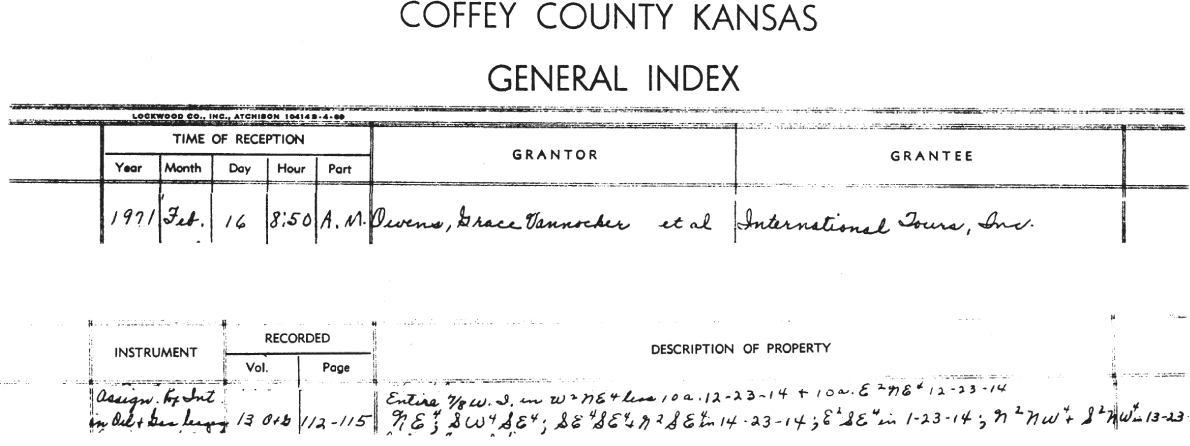 COFFEY COUNTY KANSAS
GENERAL INDEX
LOCKWOOD CO., INC., ATCHISON 10414B-4-69
TIME OF RECEPTION
GRANTOR
GRANTEE
Year Month Day Hour Part
1971 Feb. 16 8:50 A.M. Owens, Grace Vannocker et al International Tours, Inc.
INSTRUMENT
RECORDED
Vol. Page
DESCRIPTION OF PROPERTY
Assign. Int Entire 7/8 W. I. in W²NE⁴ less 10a. 12-23-14 + 10a. E²NE⁴ 12-23-14
in Oil + Gas 13 O+G 112-115 NE⁴; SW⁴SE⁴; SE⁴SE⁴+N²SE⁴ in 14-23-14; E²SE⁴ in 1-23-14; N²NW⁴+ S²NW⁴ in 13-23-